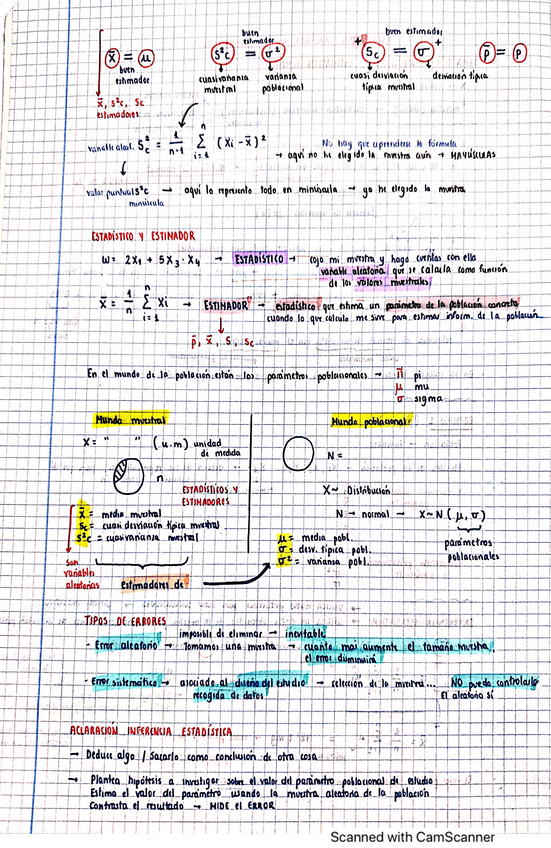 buen estimador
buen estimador
x̄ = μ
S²c = σ²
+ Sc = σ +
p̄ = p
buen estimador
cuasivarianza muestral
varianza poblacional
cuasi desviación típica muestral
desviación típica
x̄, s²c, sc
estimadores
variable aleat. S²c = 1/n-1 Σ i=1 n (xi - x̄)²
No hay que aprenderse la fórmula
→ aquí no he elegido la muestra aún → MAYÚSCULAS
valor puntual s²c → aquí lo represento todo en minúscula → ya he elegido la muestra
minúscula
ESTADÍSTICO Y ESTIMADOR
W = 2X1 + 5X3 · X4 → ESTADÍSTICO → cojo mi muestra y hago cuentas con ella
variable aleatoria que se calcula como función
de los valores muestrales
x̄ = 1/n Σ i=1 n xi → ESTIMADOR → estadístico que estima un parámetro de la población concreto
cuando lo que calculo me sirve para estimar inform. de la población
p̄, x̄, S, Sc
En el mundo de la población están los parámetros poblacionales → π pi
μ mu
σ sigma
Mundo muestral
Mundo poblacional:
X = " " (u.m) unidad
de medida
N =
n
X ~ Distribución
ESTADÍSTICOS Y
ESTIMADORES
N → normal → X ~ N (μ, σ)
x̄ = media muestral
Sc = cuasi desviación típica muestral
S²c = cuasivarianza muestral
parámetros
poblacionales
μ = media pobl.
σ = desv. típica pobl.
σ² = varianza pobl.
son
variables
aleatorias
estimadores de
TIPOS DE ERRORES
imposible de eliminar → inevitable
- Error aleatorio → Tomamos una muestra → cuanto más aumente el tamaño muestra,
el error disminuirá
- Error sistemático → asociado al diseño del estudio → selección de la muestra... NO puedo controlarlo
recogida de datos
El aleatorio sí
ACLARACIÓN INFERENCIA ESTADÍSTICA
→ Deduce algo / Sacarlo como conclusión de otra cosa
→ Plantea hipótesis a investigar sobre el valor del parámetro poblacional de estudio
Estima el valor del parámetro usando la muestra aleatoria de la población
Contrasta el resultado → MIDE el ERROR
Scanned with CamScanner